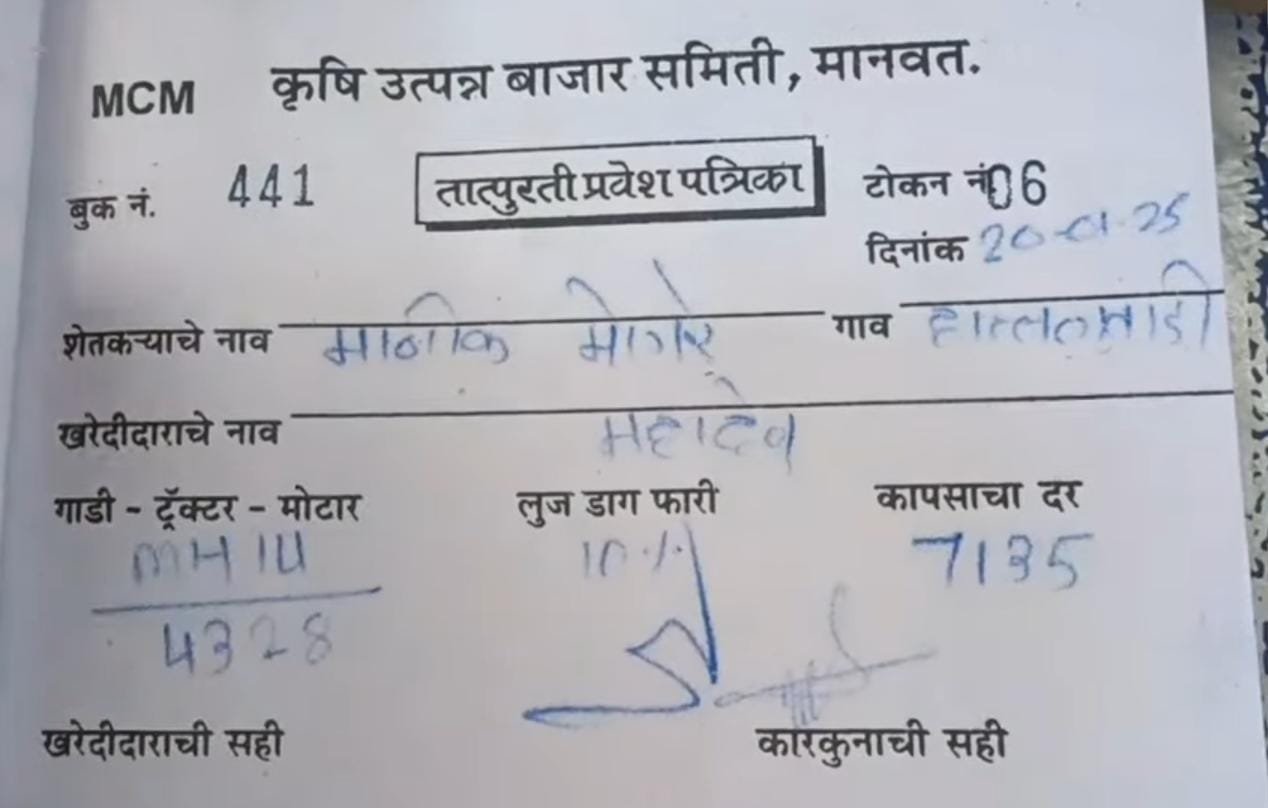 MCM कृषि उत्पन्न बाजार समिती, मानवत.
बुक नं. 441 तात्पुरती प्रवेश पत्रिका टोकन नं 06
दिनांक 20-01-25
शेतकऱ्याचे नाव माणीक गाव
खरेदीदाराचे नाव महादेव
गाडी - ट्रॅक्टर - मोटार लुज डाग फारी कापसाचा दर
MH 10 % 7135
4328
खरेदीदाराची सही कारकुनाची सही